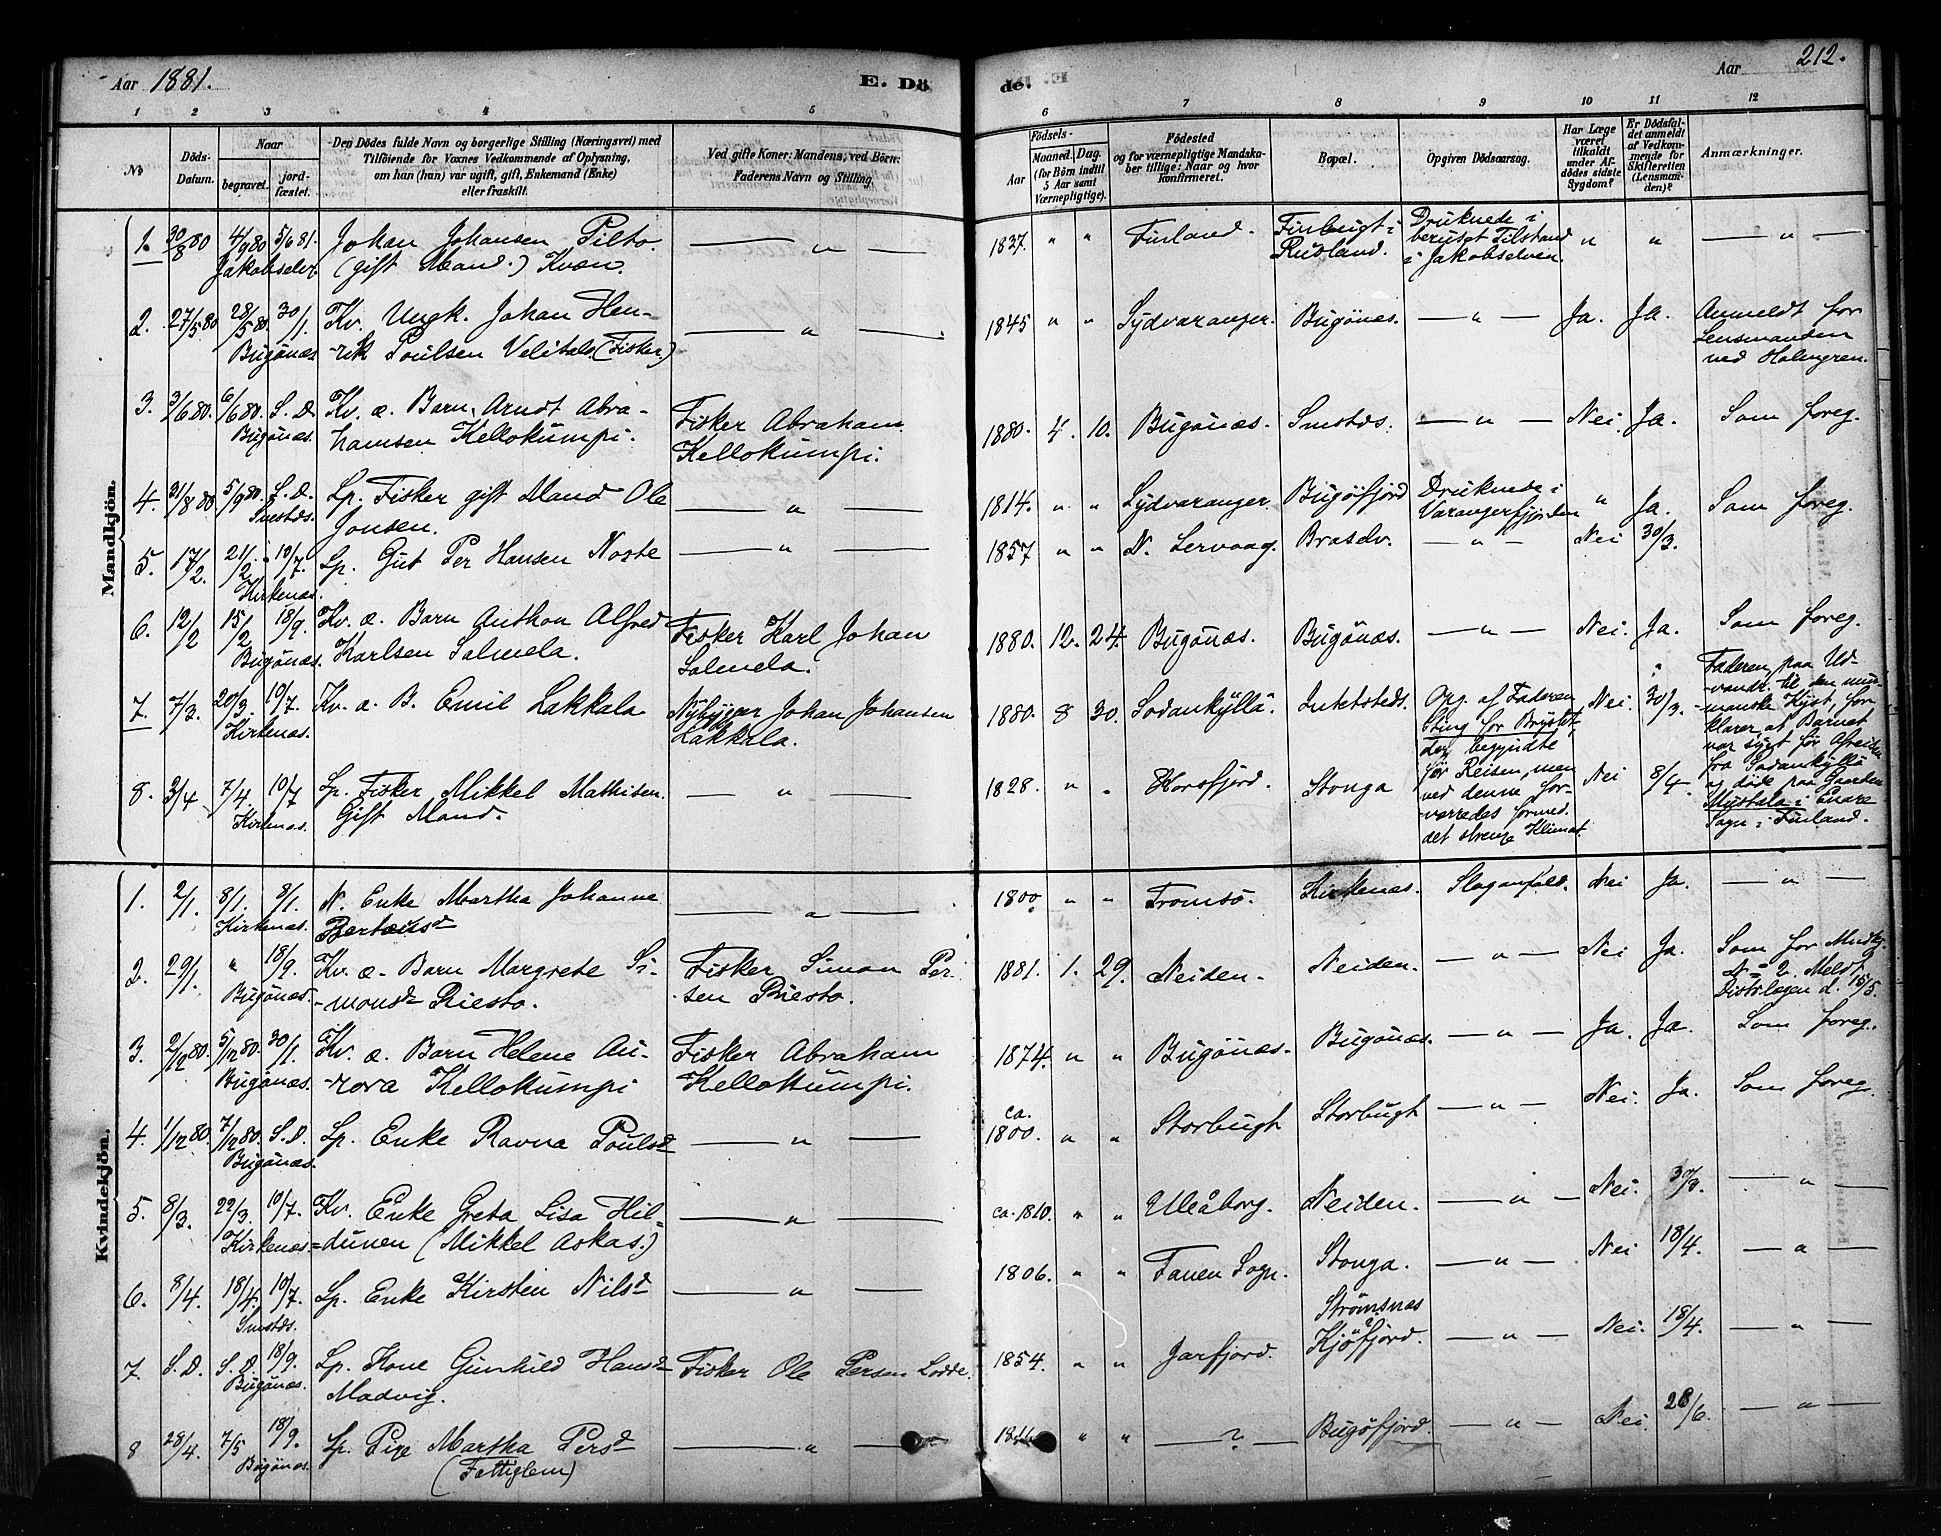 Aar 1881. E. Dö
de. Aar 212.
1 2 3 4 5 6 7 8 9 10 11 12
№ Döds-Datum. Naar begravet. jordfæstet. Den Dödes fulde Navn og borgerlige Stilling (Næringsvei) med Tilföiende for Voxnes Vedkommende af Oplysning, om han (hun) var ugift, gift, Enkemand (Enke) eller fraskilt. Ved gifte Koner: Mandens, ved Börn: Faderens Navn og Stilling. Födsels- Aar Maaned. Dag. (for Börn indtil 5 Aar samt Værnepligtige). Födested og for værnepligtige Mandskaber tillige: Naar og hvor konfirmeret. Bopæl. Opgiven Dödsaarsag. Har Læge været tilkaldt under Afdödes sidste Sygdom? Er Dödsfaldet anmeldt af Vedkommende for Skifteretten (Lensmanden)? Anmærkninger.
Mandkjön.
1. 30/8 80 4/9 80 Jakobselv. 5/6 81. Johan Johansen Pilto. (gift Mand.) Kvæn. — " — 1837. " " Finland. Finbugt i Rusland. Druknede i beruset Tilstand i Jakobselven. " " — " —
2. 27/5 80 28/5 80. Bugönæs 30/1. Kv. Ungk. Johan Hen-rik Poulsen Velitalo (Fisker.) — " — 1845 " " Sydvaranger. Bugönæs. — " — Ja. Ja. Anmeldt for Lensmanden ved Holmgren.
3. 3/6 80. 6/6 80. Bugönæs. S. D. Kv. æ. Barn, Arndt Abra-hamsen Kellokumpi. Fisker Abraham Kellokumpi. 1880. 4. 10. Bugönæs. Smstds. — " — Nei. Ja. Som foreg.
4. 31/8 80 5/9 80. Smstds. S. D. Lp. Fisker gift Mand Ole Jonsen. — " — 1814. " " Sydvaranger. Bugöfjord Druknede i Varangerfjorden " Ja. Som foreg.
5. 17/2. 21/2. Kirkenæs. 10/7. Lp. Gut Per Hansen Noste — " — 1857 " " N. Lervaag. Brasdv. — " — Nei 30/3.
6. 12/2 15/2 Bugönæs. 18/9. Kv. æ. Barn Anthon Alfred Karlsen Salmela. Fisker Karl Johan Salmela. 1880. 12. 24. Bugönæs. Bugönæs. — " — Nei. Ja. Som foreg.
7. 7/3. 20/3. Kirkenæs. 10/7. Kv. æ. B. Emil Lakkala Nybygger Johan Johansen Lakkala. 1880. 8 30. Sodankyllä. Intetsteds. Opg. af Faderen Sting for Brystet, der begyndte för Reisen, men ved denne for-værredes formed. det strenge Klimat. Nei. 30/3. Faderen, paa Ud-vandr. til den mur-manske Kyst, for-klarer, at Barnet var sygt för Afreisen fra Sodankyllä og döde paa Gaarden Mustala i Enare Sogn i Finland.
8. 3/4 7/4. Kirkenæs. 10/7 Lp. Fisker Mikkel Mathisen. Gift Mand. — " — 1828. " " Korsfjord. Stonga Nei 8/4.
Kvindekjön.
1. 2/1. 8/1. Kirkenæs. 8/1. N. Enke Martha Johanne Bertheusd — " — 1800 " " Tromsö. Kirkenæs. Slaganfald. Nei Ja. — " —
2. 29/1. " Bugönæs. 18/9. Kv. æ. Barn Margrete Si-monsd Riesto. Fisker Simon Per-sen Riesto. 1881. 1. 29. Neiden. Neiden. — " — Nei Ja. Som for Mndkj. No 2. Meldt Distrlægen d. 15/5.
3. 2/12 80. 5/12 80. Bugönæs. 30/1. Kv. æ. Barn Helene Au-rora Kellokumpi Fisker Abraham Kellokumpi. 1874. " " Bugönæs. Bugönæs. — " — Ja. Ja. Som foreg.
4. 1/12 80. 7/12 80. Bugönæs. S. D. Lp. Enke Ravna Poulsd — " — ca. 1800. " " Storbugt Storbugt — " — Nei. Ja. Som foreg.
5. 8/3. 22/3. Kirkenæs 10/7. Kv. Enke Greta Lisa Hil-dunen (Mikkel Askas.) — " — ca. 1810. " " Uleåborg. Neiden. — " — Nei. 30/3. — " —
6. 8/4. 18/4. Smstds. 10/7. Lp. Enke Kirsten Nilsd — " — 1806. " " Tanen Sogn. Stonga. — " — Nei 18/4. — " —
7. S. D. S. D. Bugönæs. 18/9. Lp. Kone Gunhild Hansd Madvig. Fisker Ole Persen Lodde. 1854. " " Jarfjord. Strömsnæs Kjöfjord. — " — Nei. 18/4. — " —
8 28/4. 7/5 Bugönæs. 18/9. Lp. Pige Martha Persd (Fattiglem) — " — " " — ? — Bugöfjord. — " — Nei. 26/6. — " —